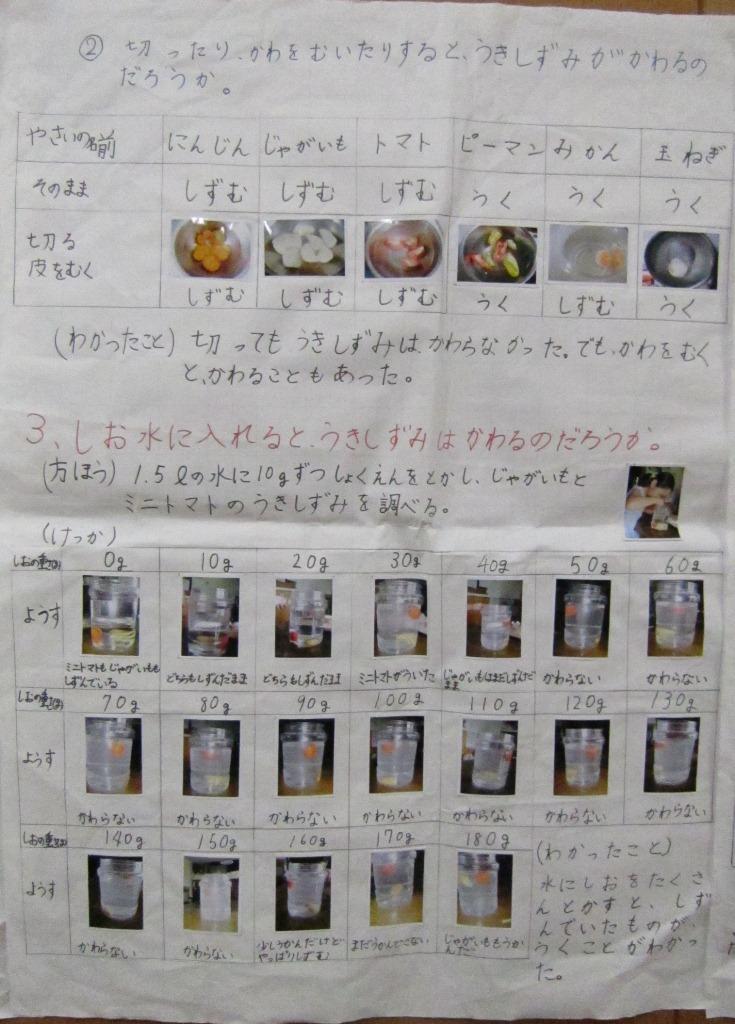 ② 切ったり、かわをむいたりすると、うきしずみがかわるの
だろうか。
やさいの名前 にんじん じゃがいも トマト ピーマン みかん 玉ねぎ
そのまま しずむ しずむ しずむ うく うく うく
切る
皮をむく
しずむ しずむ しずむ うく しずむ うく
(わかったこと) 切ってもうきしずみは、かわらなかった。でも、かわをむく
と、かわることもあった。
3、しお水に入れると、うきしずみはかわるのだろうか。
(方ほう) 1.5ℓの水に10gずつしょくえんをとかし、じゃがいもと
ミニトマトのうきしずみを調べる。
(けっか)
しおの重さ 0g 10g 20g 30g 40g 50g 60g
ようす
ミニトマトもじゃがいもも
しずんでいる
どちらもしずんだまま
どちらもしずんだまま
ミニトマトがういた
じゃがいもはまだしずんだ
まま
かわらない
かわらない
しおの重さ 70g 80g 90g 100g 110g 120g 130g
ようす
かわらない かわらない かわらない かわらない かわらない かわらない かわらない
しおの重さ 140g 150g 160g 170g 180g
ようす
かわらない
かわらない
少しうかんだけど
やっぱりしずむ
まだうかんでこない
じゃがいももうか
んだ
(わかったこと)
水にしおをたくさ
んとかすと、しず
んでいたものが、
うくことがわかっ
た。